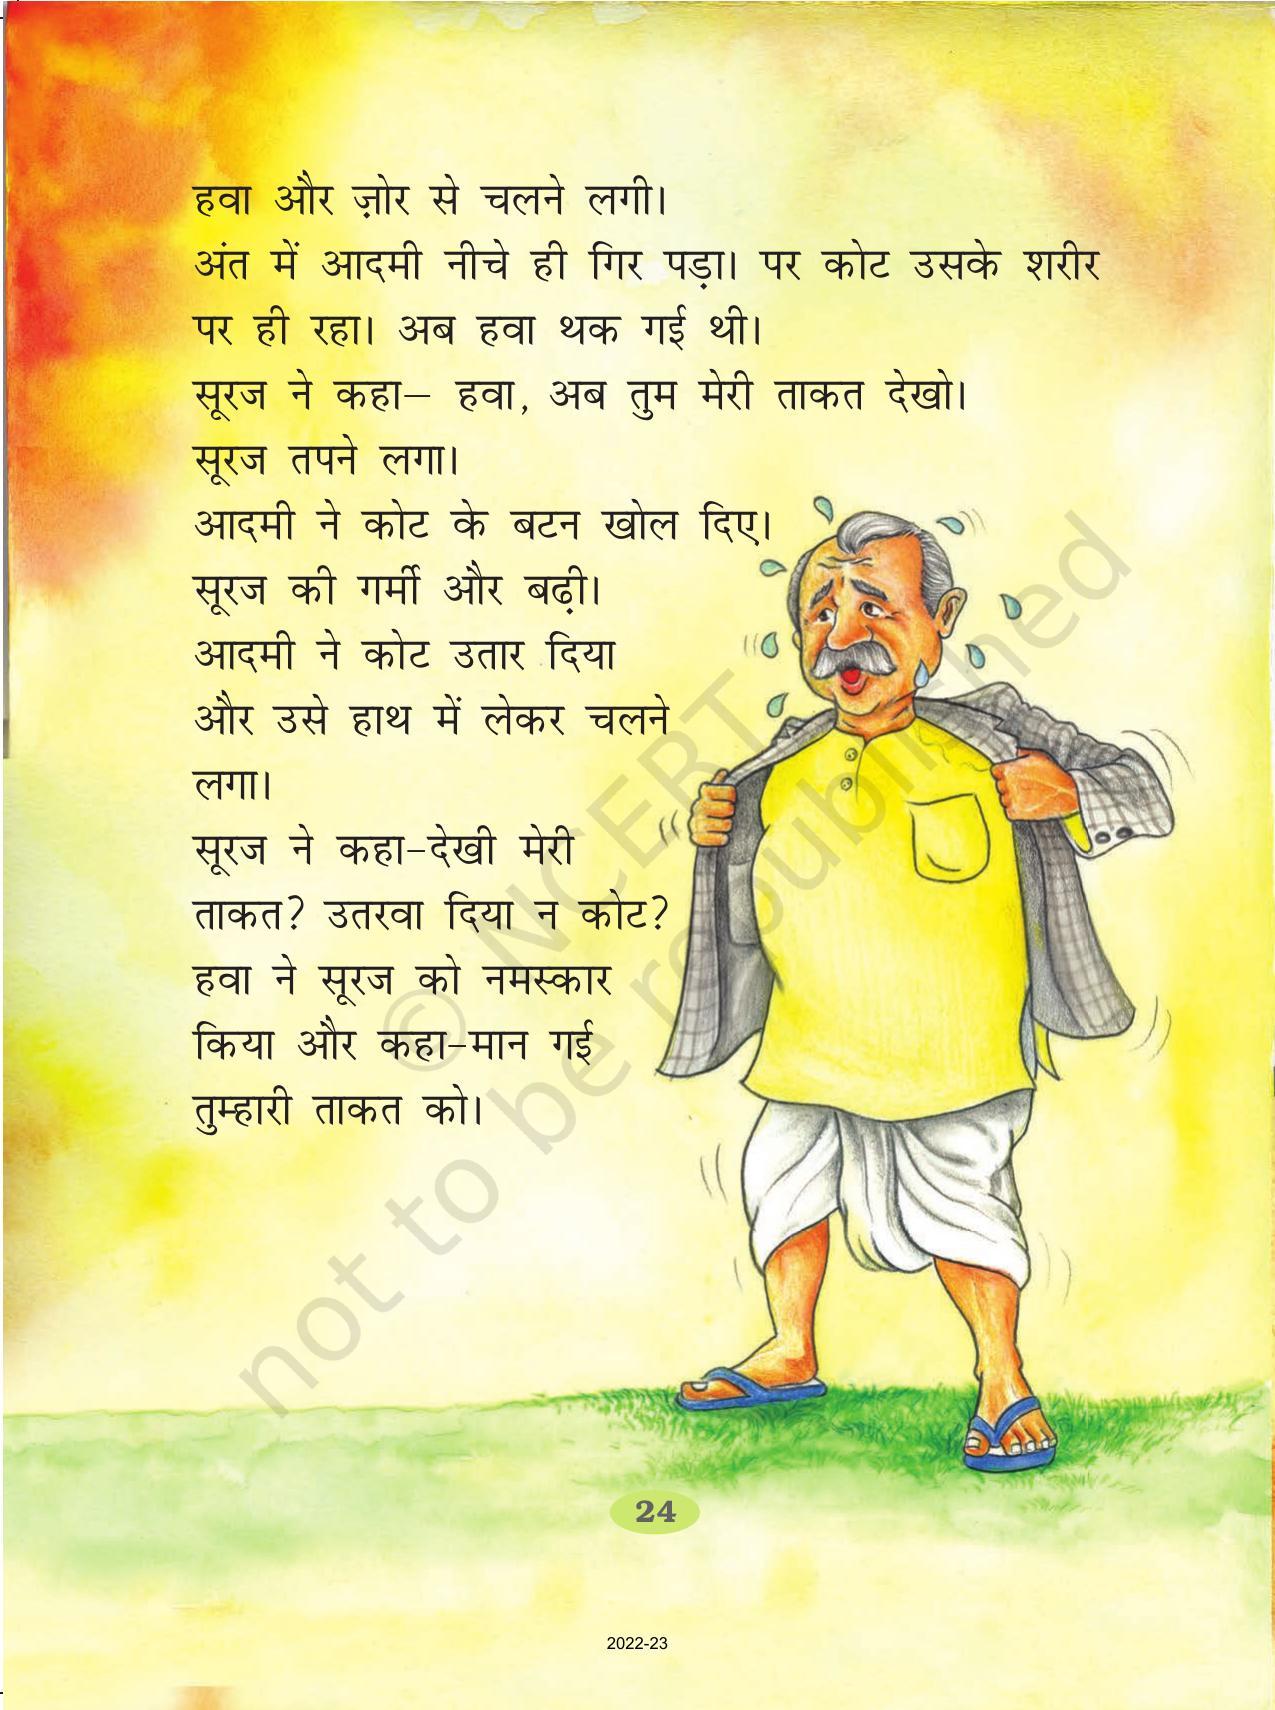 हवा और ज़ोर से चलने लगी।
अंत में आदमी नीचे ही गिर पड़ा। पर कोट उसके शरीर
पर ही रहा। अब हवा थक गई थी।
सूरज ने कहा– हवा, अब तुम मेरी ताकत देखो।
सूरज तपने लगा।
आदमी ने कोट के बटन खोल दिए।
सूरज की गर्मी और बढ़ी।
आदमी ने कोट उतार दिया
और उसे हाथ में लेकर चलने
लगा।
सूरज ने कहा-देखी मेरी
ताकत? उतरवा दिया न कोट?
हवा ने सूरज को नमस्कार
किया और कहा-मान गई
तुम्हारी ताकत को।
© NCERT
not to be republished
24
2022-23